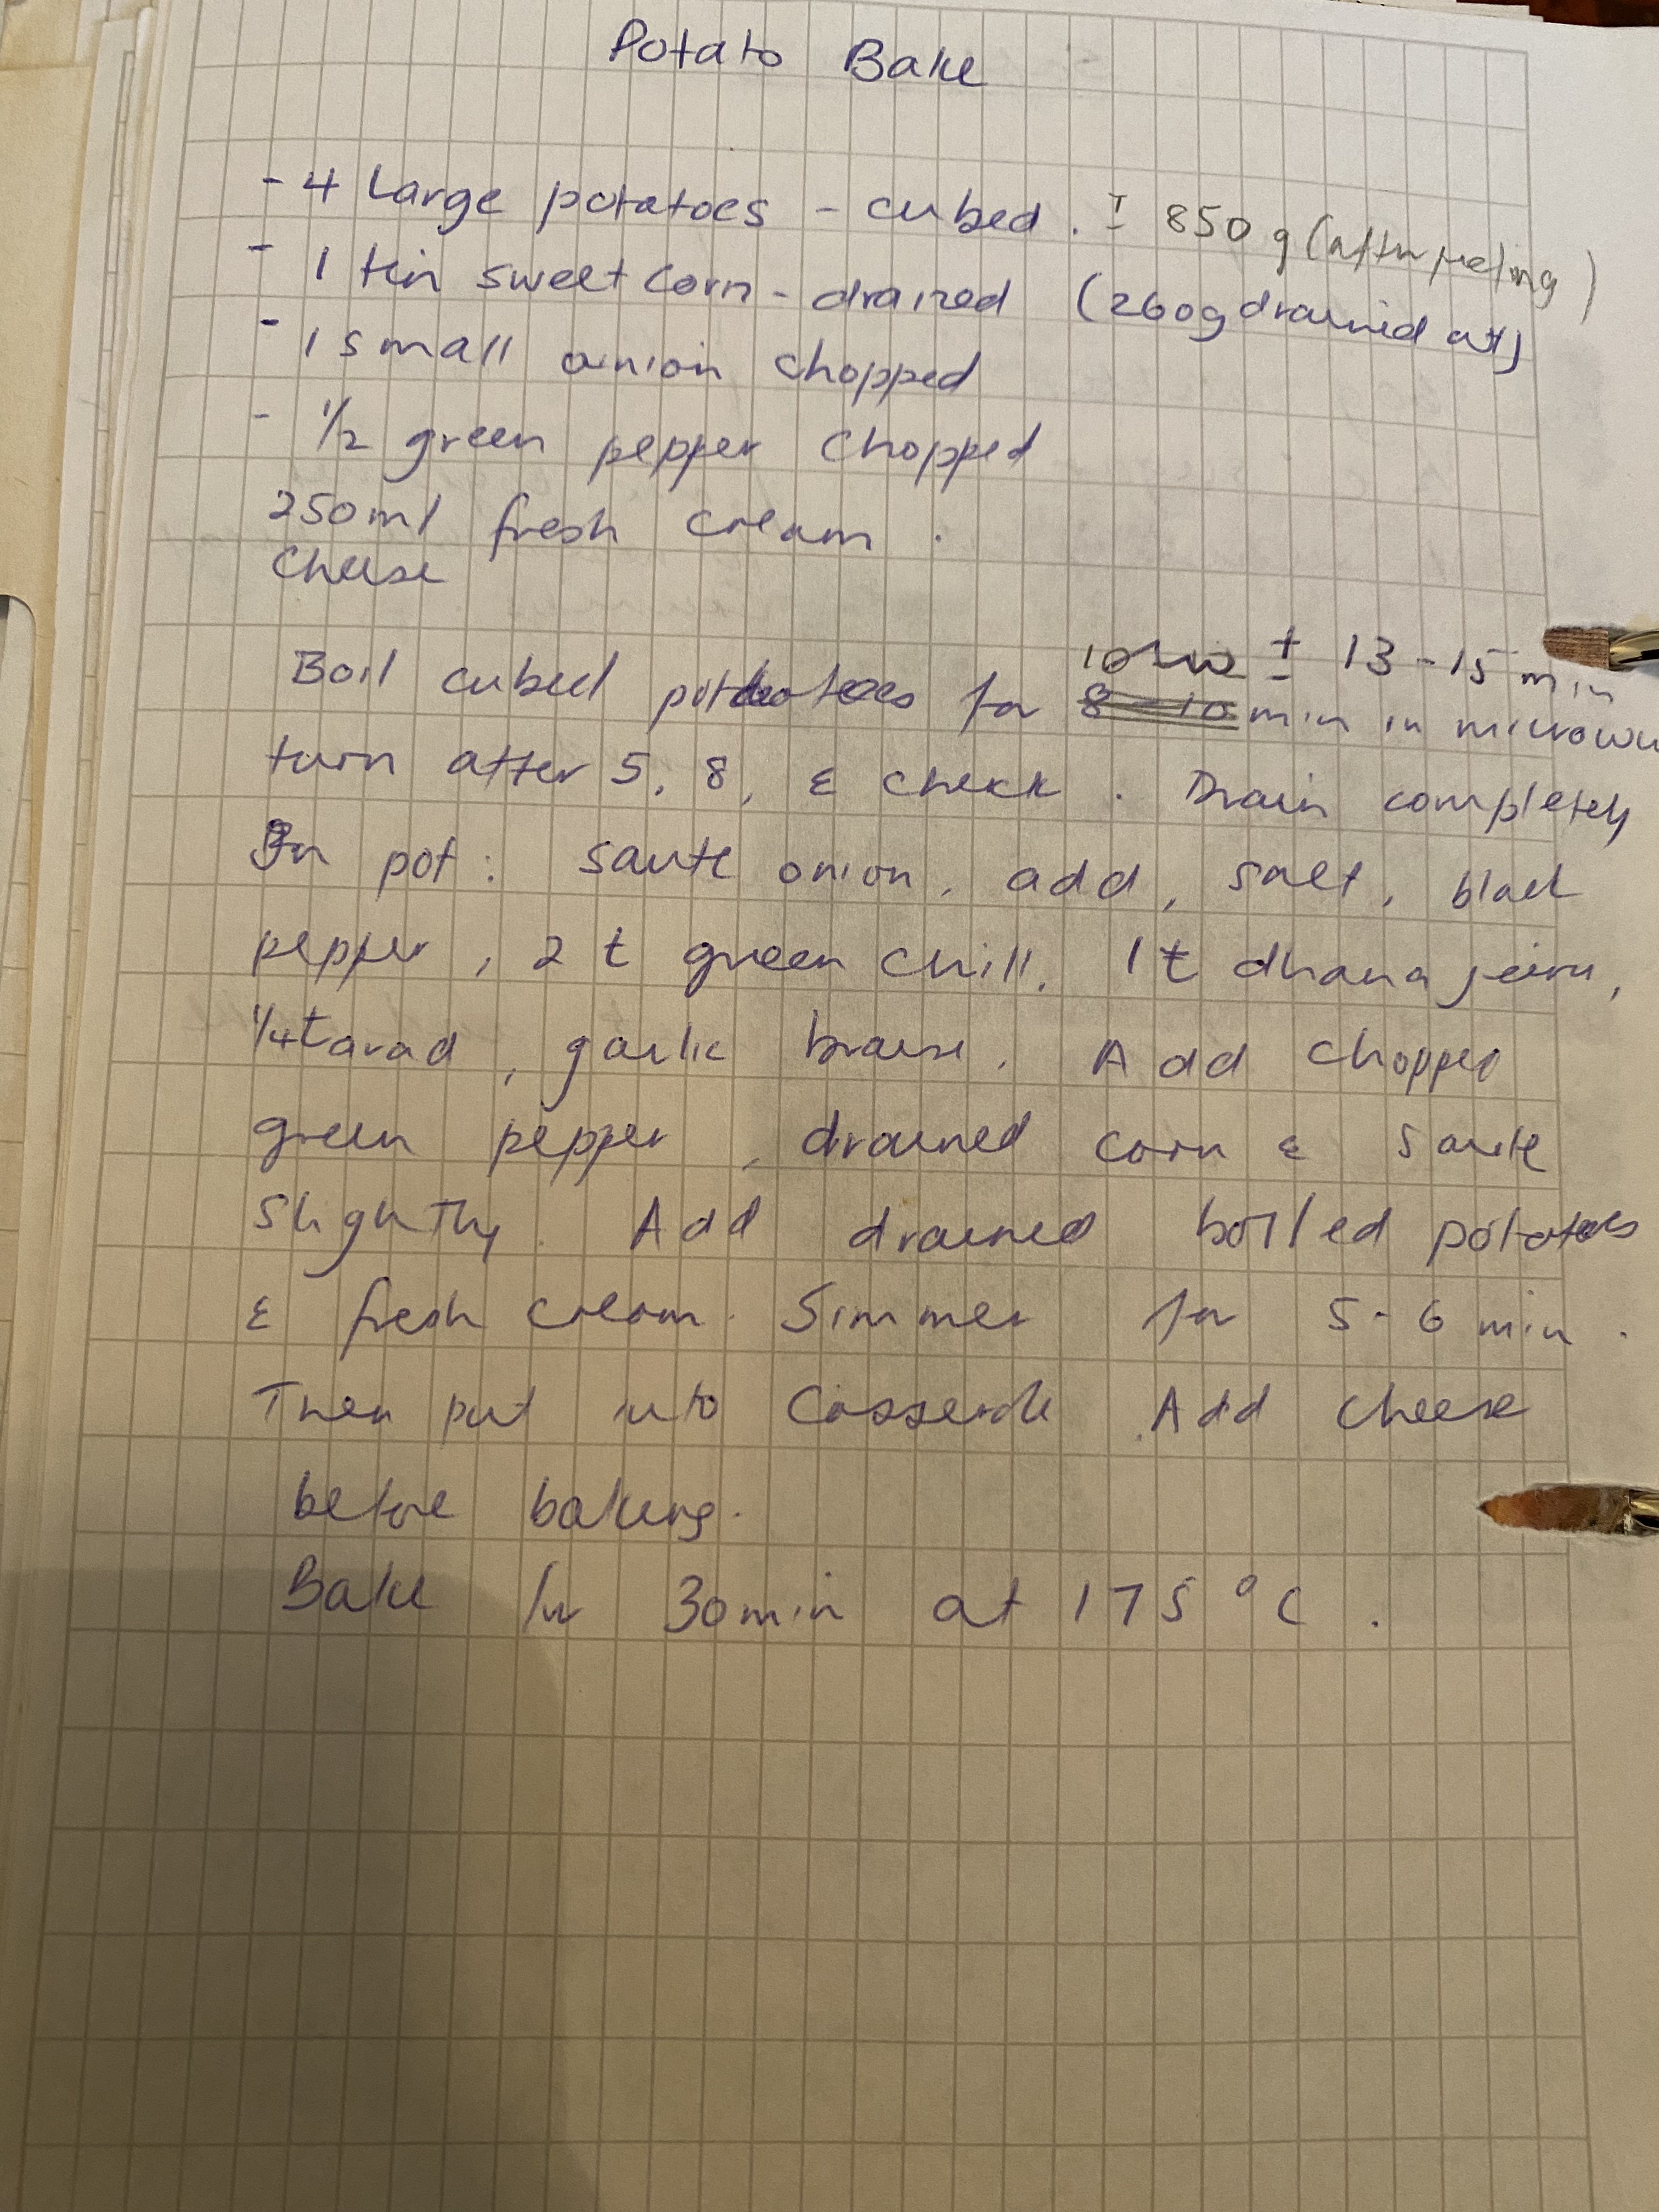 Potato Bake
- 4 Large potatoes - cubed . ± 850 g (after peeling)
- 1 tin sweet corn - drained (260g drained wt)
- 1 small onion chopped
- 1/2 green pepper chopped
250ml fresh cream .
Cheese
± 13 - 15 min
Boil cubed potatoes for 8 - 10 min in microwave
turn after 5, 8, & check . Drain completely
In pot : saute onion, add, salt, black
pepper, 2 t green chilli, 1 t dhana jeiru,
1/4 t arad, garlic braise. Add chopped
green pepper, drained corn & saute
slightly. Add drained boiled potatoes
& fresh cream. Simmer for 5 - 6 min .
Then put into Casserole . Add cheese
before baking.
Bake for 30 min at 175 °C .